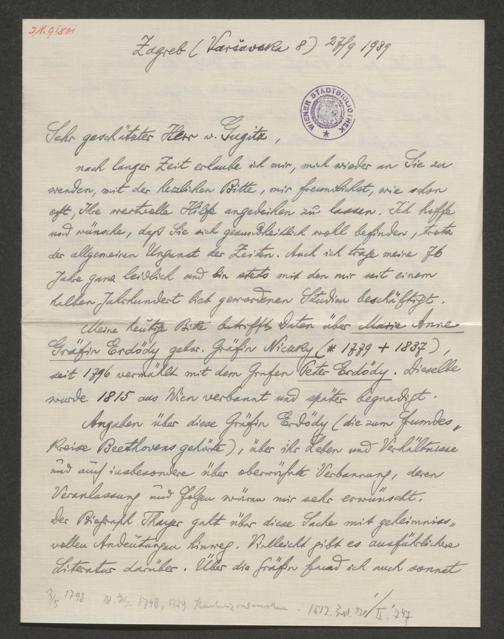 J.N. 91801
Zagreb (Varšavska 8) 27/9 1939
WIENER STADTBIBLIOTHEK
Sehr geschätzter Herr v. Gugitz,
nach langer Zeit erlaube ich mir, mich wieder an Sie zu
wenden, mit der herzlichen Bitte, mir freundlichst, wie schon
oft, Ihre wertvolle Hilfe angedeihen zu lassen. Ich hoffe
und wünsche, daß Sie sich gesundheitlich wohl befinden, trotz
der allgemeinen Ungunst der Zeiten. Auch ich trage meine 76
Jahre ganz leidlich und bin stets mit den mir seit einem
halben Jahrhundert lieb gewordenen Studien beschäftigt.
Meine heutige Bitte betrifft Daten über Marie Anne
Gräfin Erdödy gebor. Gräfin Niczky (* 1779 + 1837),
seit 1796 vermählt mit dem Grafen Peter Erdödy. Dieselbe
wurde 1815 aus Wien verbannt und später begnadigt.
Angaben über diese Gräfin Erdödy (die zum Freundes-
Kreise Beethovens gehörte), über ihr Leben und Verhältnisse
und auch insbesondere über oberwähnte Verbannung, deren
Veranlassung und Folgen wären mir sehr erwünscht.
Der Biograph Thayer geht über diese Sache mit geheimniss-
vollen Andeutungen hinweg. Vielleicht gibt es ausführlichere
Literatur darüber. Über die Gräfin fand ich auch sonst
1798 1798, 1817